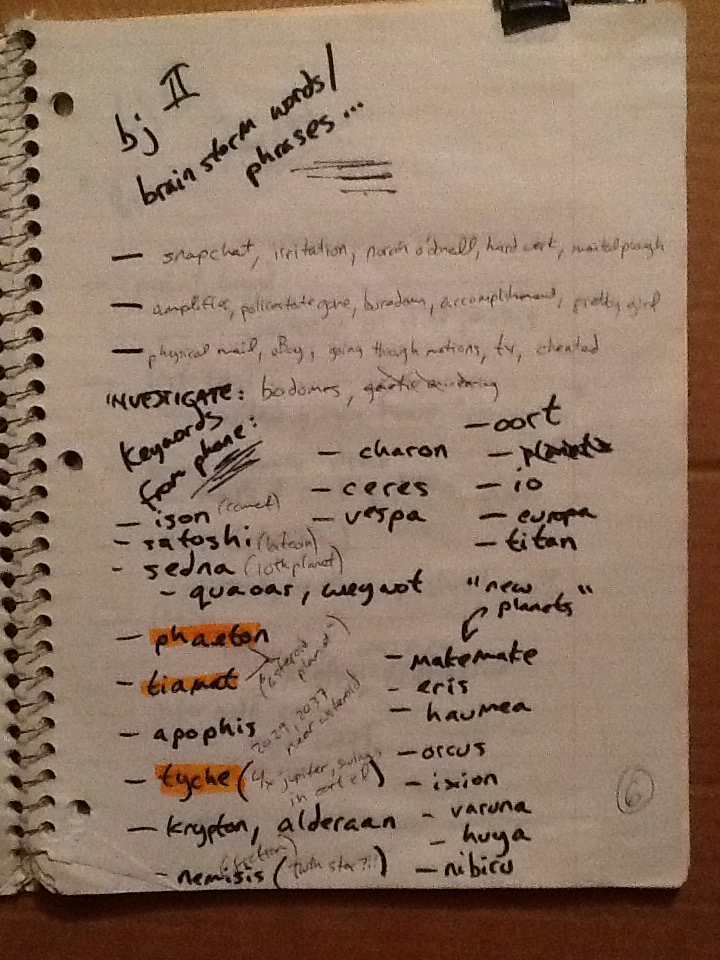 bj II
brainstorm words/
phrases...
— snapchat, irritation, norah o'dnell, hard work,
— amplifier, policestate game, boredom, accomplishment, pretty girl
— physical mail, eBay, going through motions, tv, cheated
INVESTIGATE: biodomes,
Keywords
from phone:
— ison (comet)
— satoshi (bitcoin)
- sedna (10th planet)
- quaoar, weywot
— phaeton
— tiamat
(asteroid planet?)
— apophis
2029, 2037
near asteroid
— tyche (4x jupiter, swings
in oort cld)
— krypton, alderaan
(fiction)
- nemisis (twin star?!!)
— charon
— ceres
— vespa
— oort
— io
— europa
— titan
"new
planets"
— makemake
- eris
— haumea
— orcus
— ixion
- varuna
- huya
— nibiru
6